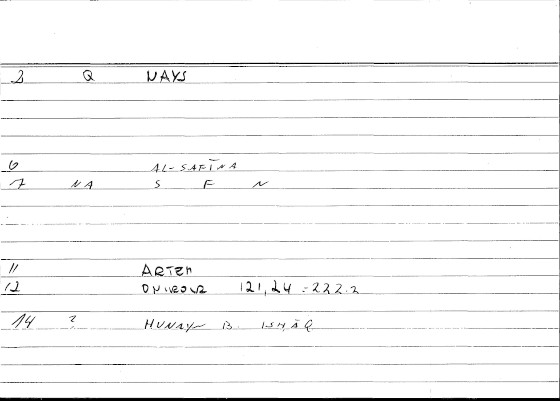 2 Q NAYS
6 AL-SAFĪNA
7 NA S F N
11 ARTEM
12 ONIROCR 121,24 = 222.2
14 ? HUNAYN B. ISḤĀQ